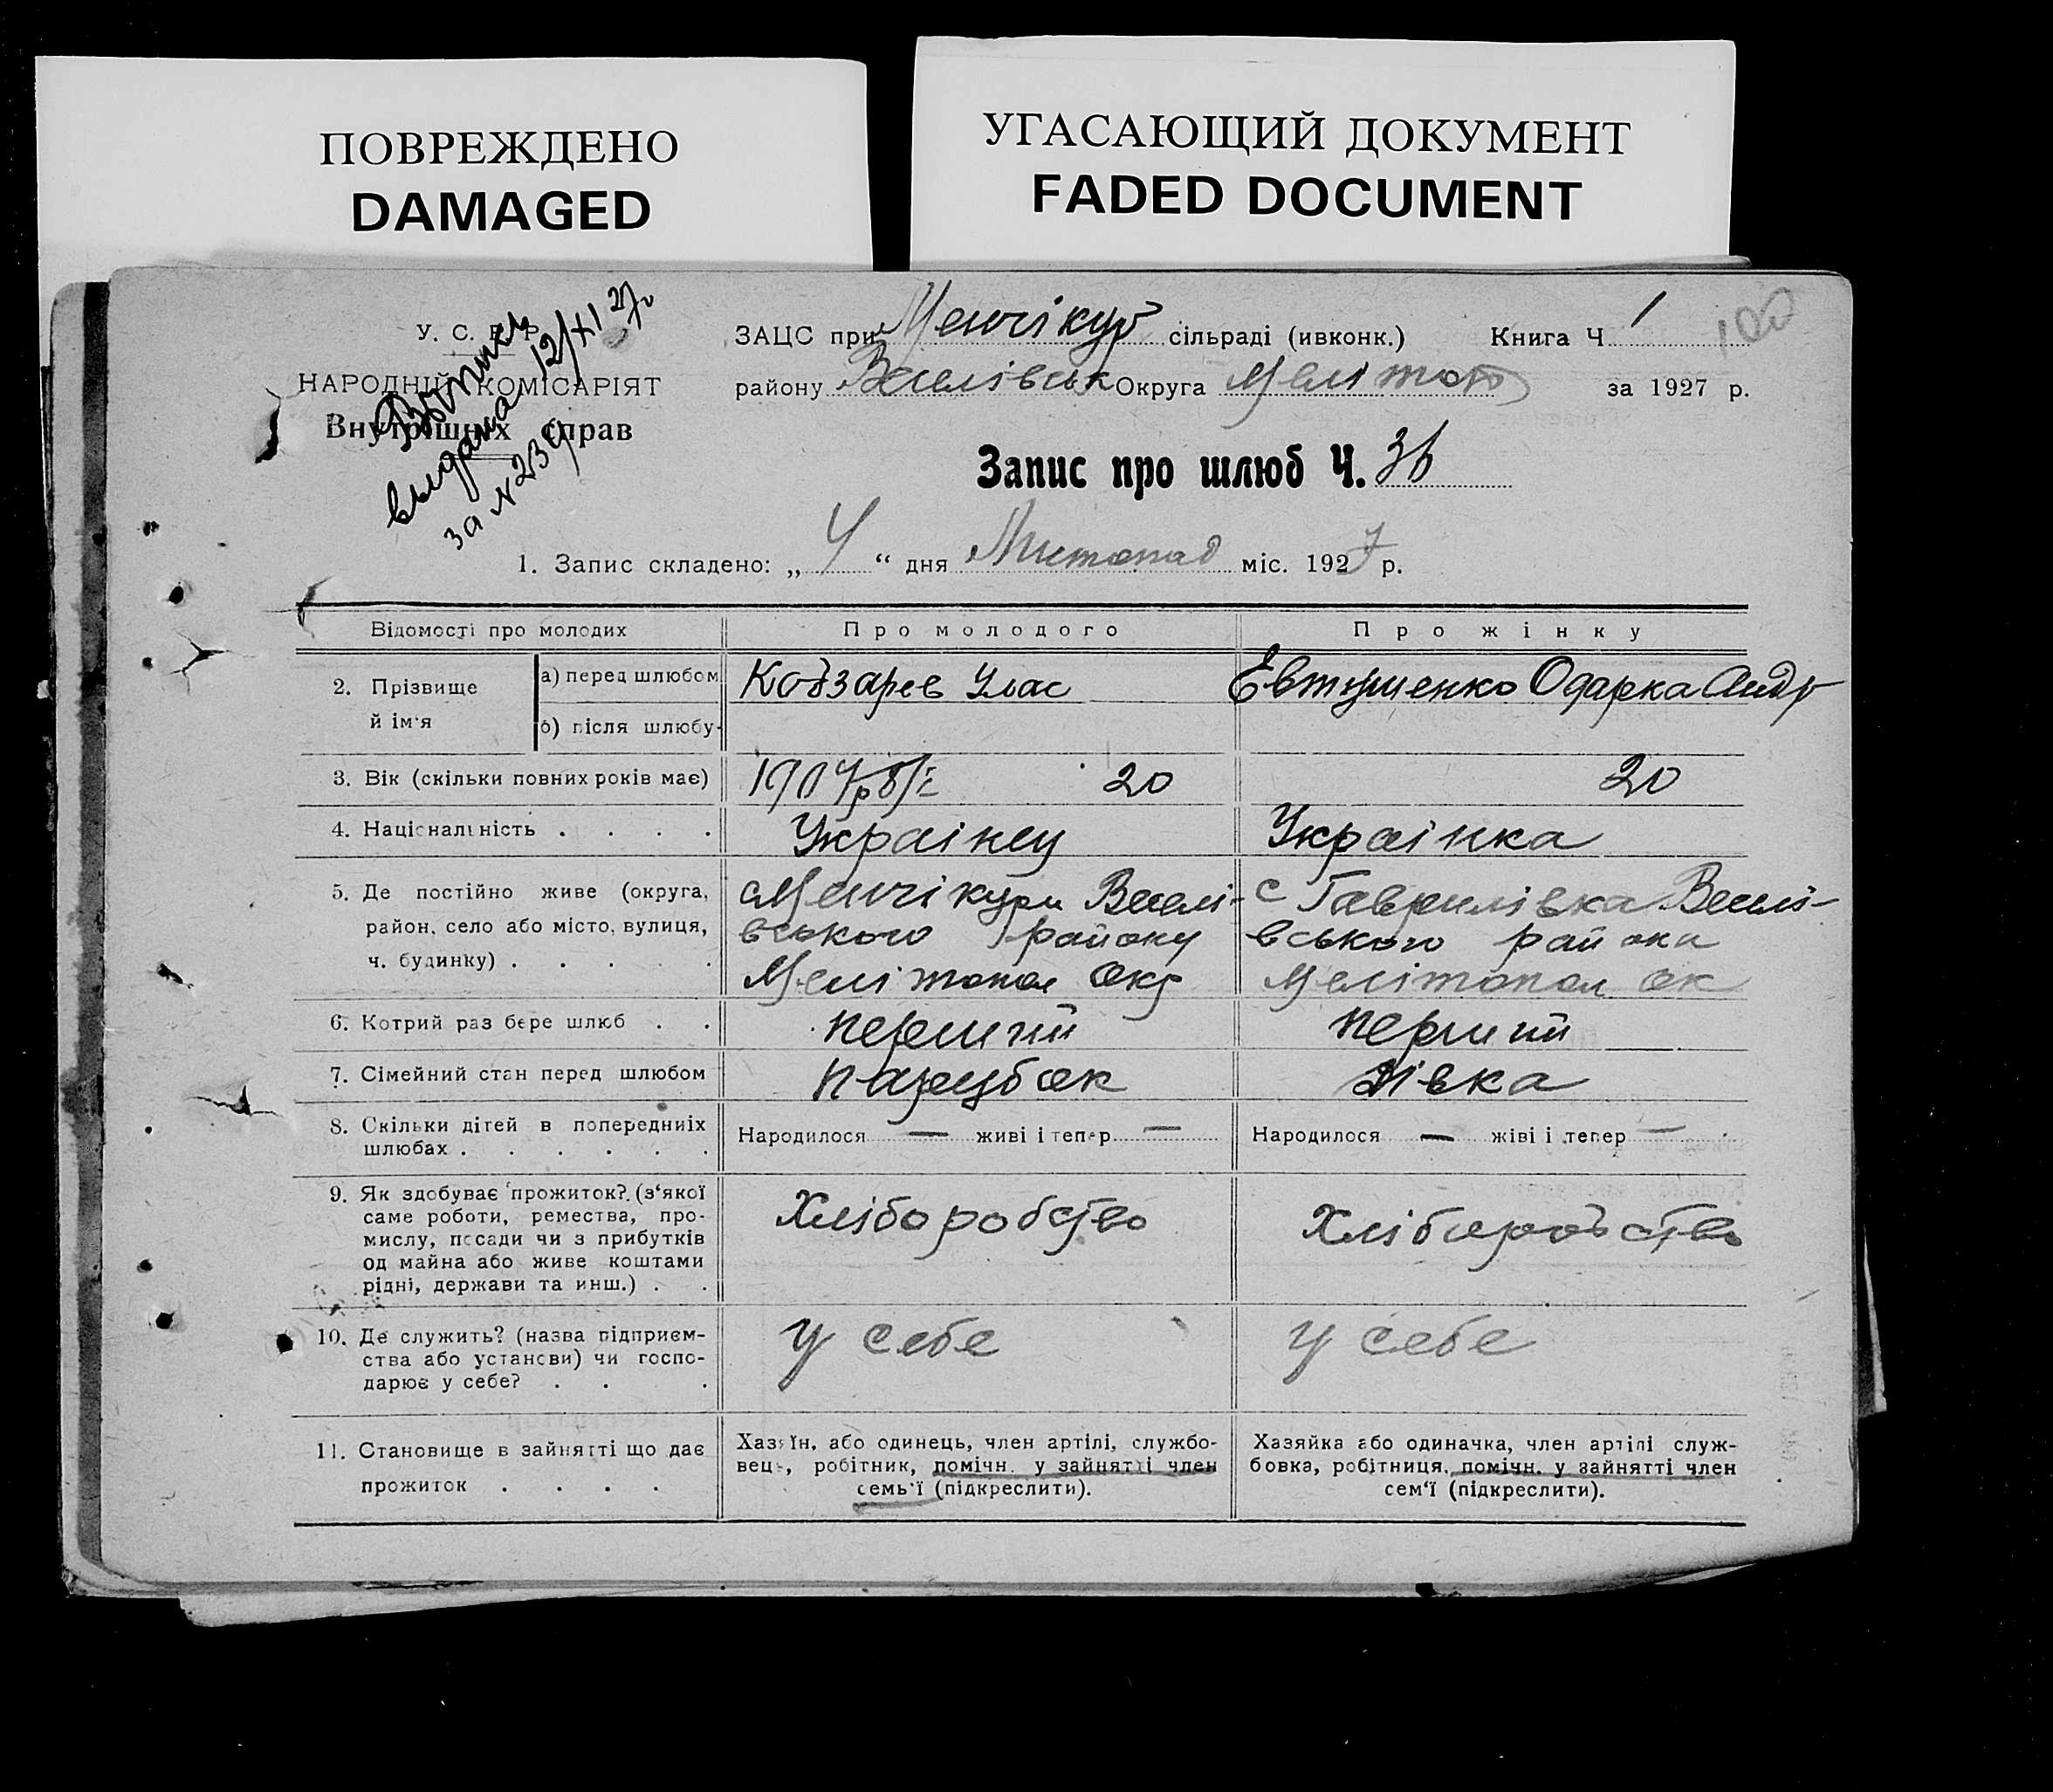 ПОВРЕЖДЕНО
DAMAGED
УГАСАЮЩИЙ ДОКУМЕНТ
FADED DOCUMENT
У. С. Р. Р.
НАРОДНІЙ КОМІСАРІЯТ
Внутрішніх справ
Выпись
выдана 12/XI 27г
за N 239
ЗАЦС при Менчікур сільраді (ивконк.) Книга Ч 1
100
району Веселівськ Округа Меліто за 1927 р.
Запис про шлюб Ч. 36
1. Запис складено: „ 4 “ дня Листопад міс. 1927 р.
Відомості про молодих Про молодого Про жінку
2. Прізвище й ім'я
а) перед шлюбом Кобзарев Улас Евтушенко Одарка Андр
б) після шлюбу
3. Вік (скільки повних років має) 20 20
4. Національність . . . . Українец Українка
5. Де постійно живе (округа, район, село або місто, вулиця, ч. будинку) . . . . .
Менчікури Веселі-
вського району
Мелітопол Окр
с Гаврилівка Веселі-
вського района
Мелітопол ок
6. Котрий раз бере шлюб . . перший перший
7. Сімейний стан перед шлюбом парубок Дівка
8. Скільки дітей в попередніх шлюбах . . . . . .
Народилося — живі і тепер — Народилося — жіві і тепер —
9. Як здобуває прожиток? (з'якої
саме роботи, ремества, про-
мислу, посади чи з прибутків
од майна або живе коштами
рідні, держави та инш.) . .
Хлібо робство Хліборобство
10. Де служить? (назва підприєм-
ства або установи) чи госпо-
дарює у себе? . . .
у себе у себе
11. Становище в зайнятті що дає
прожиток . . . .
Хазяїн, або одинець, член артілі, службо-
вець, робітник, помічн. у зайнятті член
семь'ї (підкреслити).
Хазяйка або одиначка, член артілі служ-
бовка, робітниця, помічн. у зайнятті член
сем'ї (підкреслити).